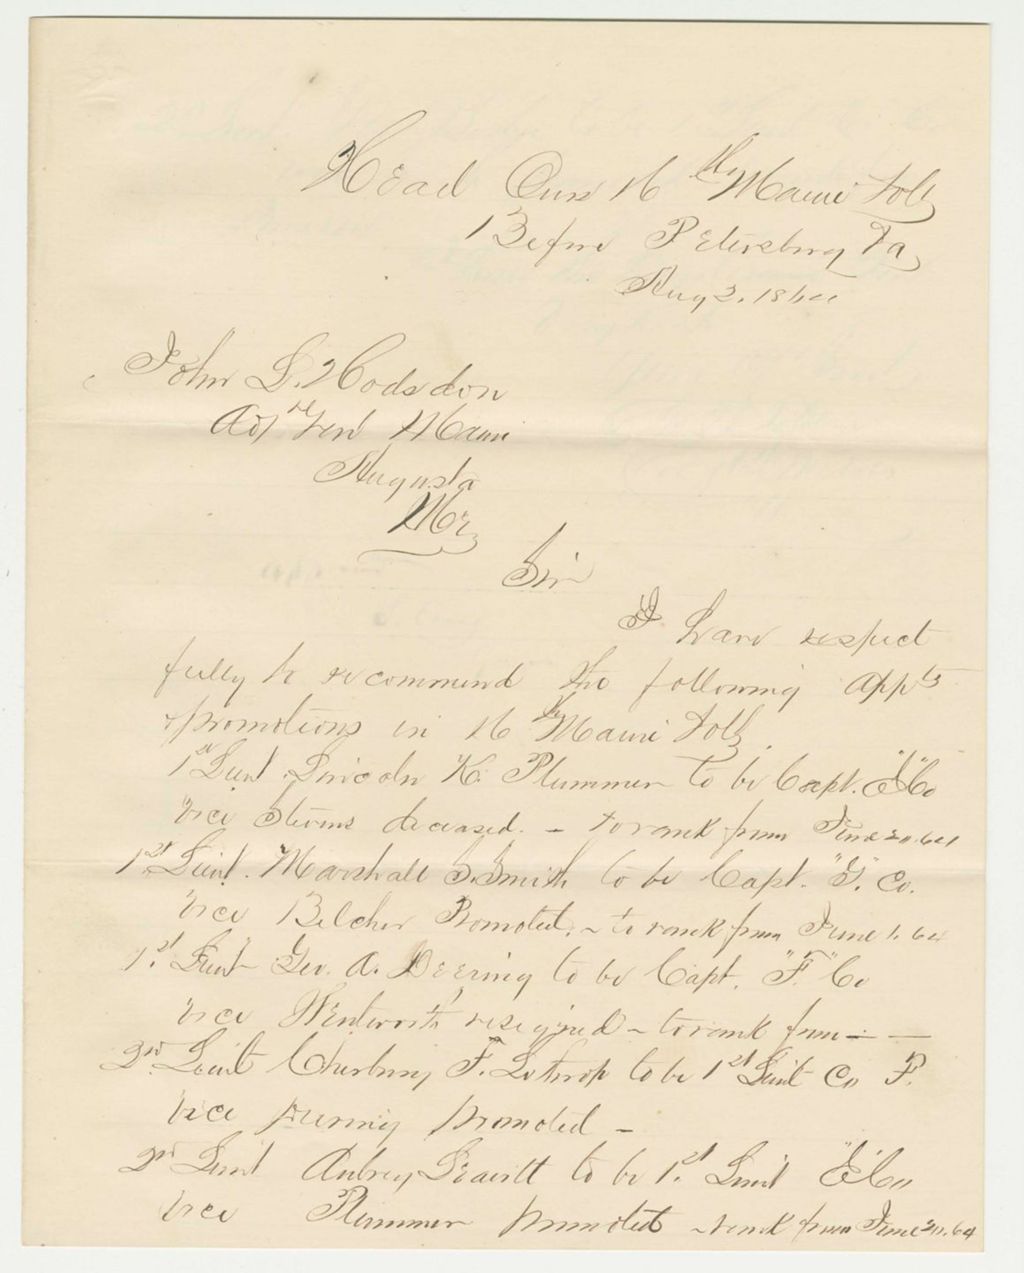 Head Qurs 16th Maine Vols
Before Petersburg Va
Aug 2. 1864
John L. Hodsdon
Adjt Genl Maine
Augusta
Me
Sir
I have respect
fully to recommend the following appts
& promotions in 16th Maine Vols.
1st Lieut Lincoln K. Plummer to be Capt. "E" Co
vice Stevens deceased. - to rank from June 20. 64
1st Lieut. Marshall S. Smith to be Capt. "G". Co.
vice Belcher Promoted. - to rank from June 1. 64
1st. Lieut Geo. A. Deering to be Capt. "F." Co
vice Wentworth resigned - to rank from - - -
2nd. Lieut F. Lothrop to be 1st Lieut Co F.
vice Deering promoted -
2nd Lieut Aubrey Leavitt to be 1st. Lieut "E" Co
vice Plummer promoted - rank from June 20. 64